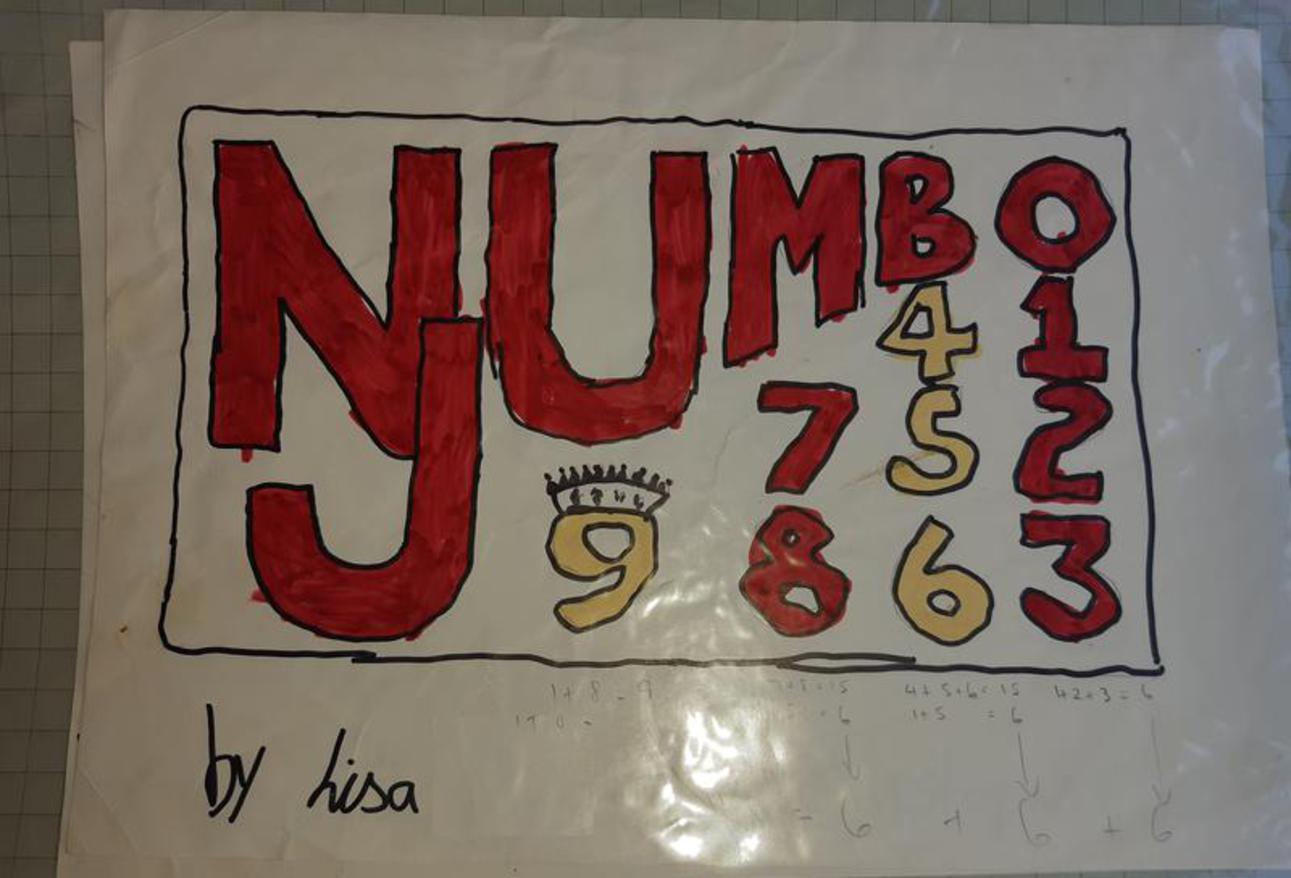 NUMBO
J
4 1
7 5 2
9 8 6 3
1+8=9 4+5+6=15 1+2+3=6
1+5 =6
6 + 6 + 6
by Lisa